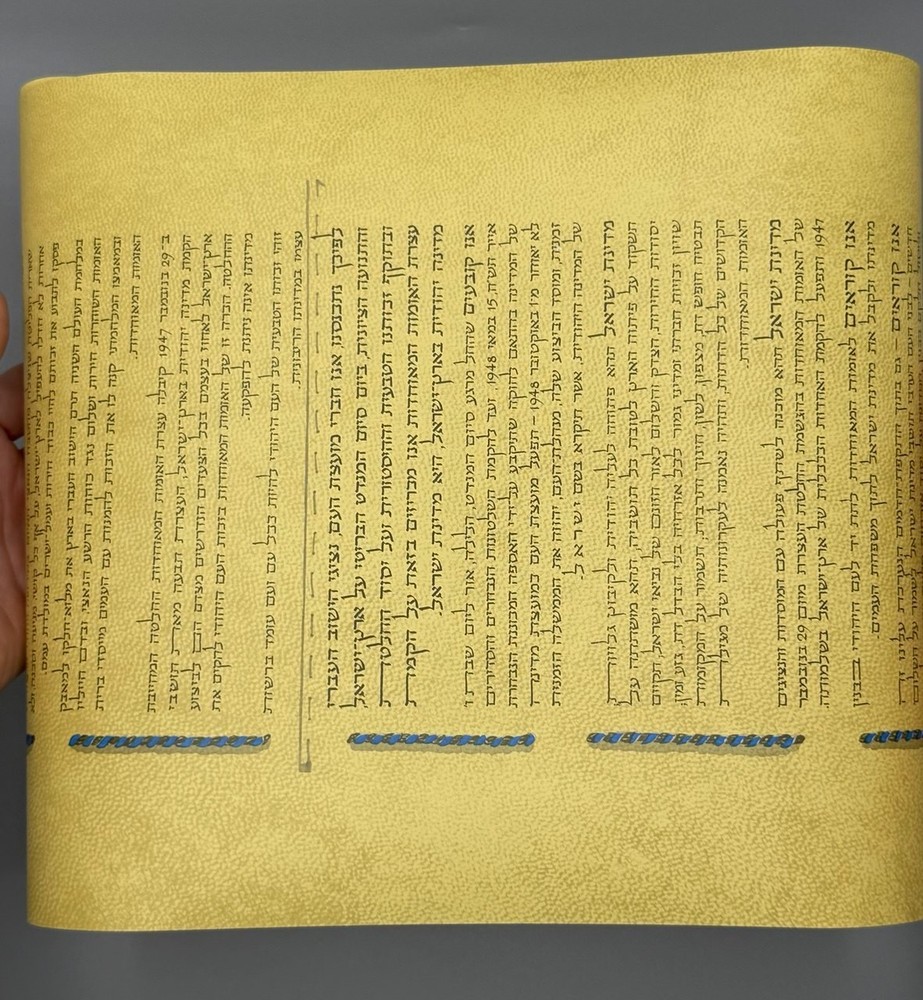 במלחמת העולם השניה תרם הישוב העברי בארץ את מלוא-חלקו למאבק
האומות השוחרות חירות ושלום נגד כוחות הרשע הנאצי, ובדם חייליו
ובמאמצו המלחמתי קנה לו את הזכות להמנות עם העמים מייסדי ברית
האומות המאוחדות.
ב-29 בנובמבר 1947 קיבלה עצרת האומות המאוחדות החלטה המחייבת
הקמת מדינה יהודית בארץ-ישראל; העצרת תבעה מאת תושבי
ארץ-ישראל לאחוז בעצמם בכל הצעדים הנדרשים מצידם הם לביצוע
ההחלטה. הכרה זו של האומות המאוחדות בזכות העם היהודי להקים את
מדינתו אינה ניתנת להפקעה.
זוהי זכותו הטבעית של העם היהודי להיות ככל עם ועם עומד ברשות
עצמו במדינתו הריבונית.
לפיכך נתכנסנו אנו חברי מועצת העם, נציגי הישוב העברי
והתנועה הציונית, ביום סיום המנדט הבריטי על ארץ-ישראל,
ובתוקף זכותנו הטבעית וההיסטורית ועל יסוד החלטת
עצרת האומות המאוחדות אנו מכריזים בזאת על הקמת
מדינה יהודית בארץ-ישראל, היא מדינת ישראל.
אנו קובעים שהחל מרגע סיום המנדט, הלילה, אור ליום שבת ו'
אייר תש״ח, 15 במאי 1948, ועד להקמת השלטונות הנבחרים והסדירים
של המדינה בהתאם לחוקה שתיקבע על-ידי האספה המכוננת הנבחרת
לא יאוחר מ-1 באוקטובר 1948 - תפעל מועצת העם כמועצת מדינה
זמנית, ומוסד הביצוע שלה, מנהלת-העם, יהווה את הממשלה הזמנית
של המדינה היהודית, אשר תיקרא בשם ישראל.
מדינת ישראל תהא פתוחה לעליה יהודית ולקיבוץ גלויות;
תשקוד על פיתוח הארץ לטובת כל תושביה; תהא מושתתה על
יסודות החירות, הצדק והשלום לאור חזונם של נביאי ישראל; תקיים
שויון זכויות חברתי ומדיני גמור לכל אזרחיה בלי הבדל דת, גזע ומין;
תבטיח חופש דת, מצפון, לשון, חינוך ותרבות; תשמור על המקומות
הקדושים של כל הדתות; ותהיה נאמנה לעקרונותיה של מגילת
האומות המאוחדות.
מדינת ישראל תהא מוכנה לשתף פעולה עם המוסדות והנציגים
של האומות המאוחדות בהגשמת החלטת העצרת מיום 29 בנובמבר
1947 ותפעל להקמת האחדות הכלכלית של ארץ-ישראל בשלמותה.
אנו קוראים לאומות המאוחדות לתת יד לעם היהודי בבנין
מדינתו ולקבל את מדינת ישראל לתוך משפחת העמים.
אנו קוראים -